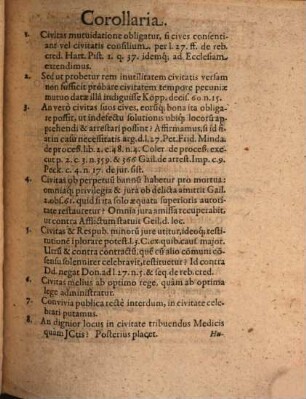 Corollaria.
1. Civitas mutuidatione obligatur, si cives consenti-
ant vel civitatis consilium. per l. 27. ff. de reb.
cred. Hart. Pist. 1. q. 37. idemq; ad Ecclesiam
extendimus.
2. Sed ut probetur rem inutilitatem civitatis versam
non sufficit probare civitatem tempore pecuniæ
mutuo datæ illâ indiguisse Köpp. decis. 60 n. 15.
3. An verò civitas suos cives, eorúsq; bona ita obliga-
re possit, ut indefectu solutionis ubiq; locorũ ap-
prehendi & arrestari possint? Affirmamus, si id
fiat in casu necessitatis arg. d l. 27. Pet. Frid. Minda.
de process. lib. 2. c. 48. n. 4. Coler de process. ex-
ecut. p. 2. c. 3. n. 359. & 366 Gail. de arrest. Imp. c. 9.
Peck. c. 4. n. 17. de jur. sist.
4. Civitas ob perpetuũ bannũ habetur pro mortua:
omniaq; privilegia & jura ob delicta amittit Gail.
2. obs. 61. quid si ita solo æquata superioris autori-
tate restauretur? Omnia jura amissa recuperabit,
ut contra Afflictum statuit Geild. loc.
5. Civitas & Respub. minorũ jure utitur, idemq; resti-
tutione implorare potest l. 5. C. ex quib. caus. major.
Ursũ & contra contractũ, quē cũ alio cōmuni cō-
sensu solenniter celebravit, restituetur? Id contra
Dd. negat Don. ad l. 27. n. 5. & seq de reb. cred.
6. Civitas melius ab optimo rege, quàm ab optima
lege administratur.
7. Convivia publica rectè interdum, in civitate cele-
brari putamus.
8. An dignior locus in civitate tribuendus Medicis
quàm JCtus? Posterius placet.
Hu-